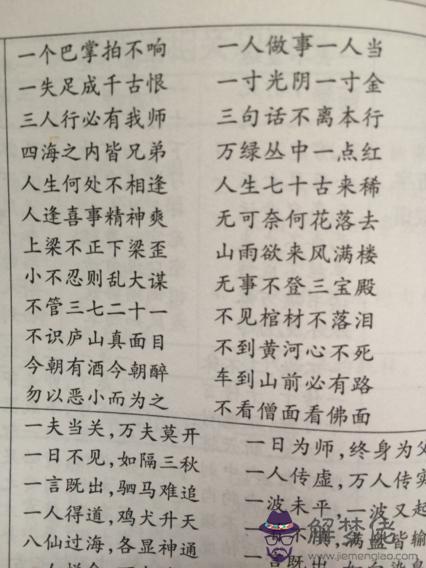 一个巴掌拍不响
一失足成千古恨
三人行必有我师
四海之内皆兄弟
人生何处不相逢
人逢喜事精神爽
上梁不正下梁歪
小不忍则乱大谋
不管三七二十一
不识庐山真面目
今朝有酒今朝醉
勿以恶小而为之
一人做事一人当
一寸光阴一寸金
三句话不离本行
万绿丛中一点红
人生七十古来稀
无可奈何花落去
山雨欲来风满楼
无事不登三宝殿
不见棺材不落泪
不到黄河心不死
车到山前必有路
不看僧面看佛面
一夫当关，万夫莫开
一日不见，如隔三秋
一言既出，驷马难追
一人得道，鸡犬升天
八仙过海，各显神通
一日为师，终身为父
一人传虚，万人传实
一波未平，一波又起
满盘皆输
解梦佬
www.jiemenglao.com